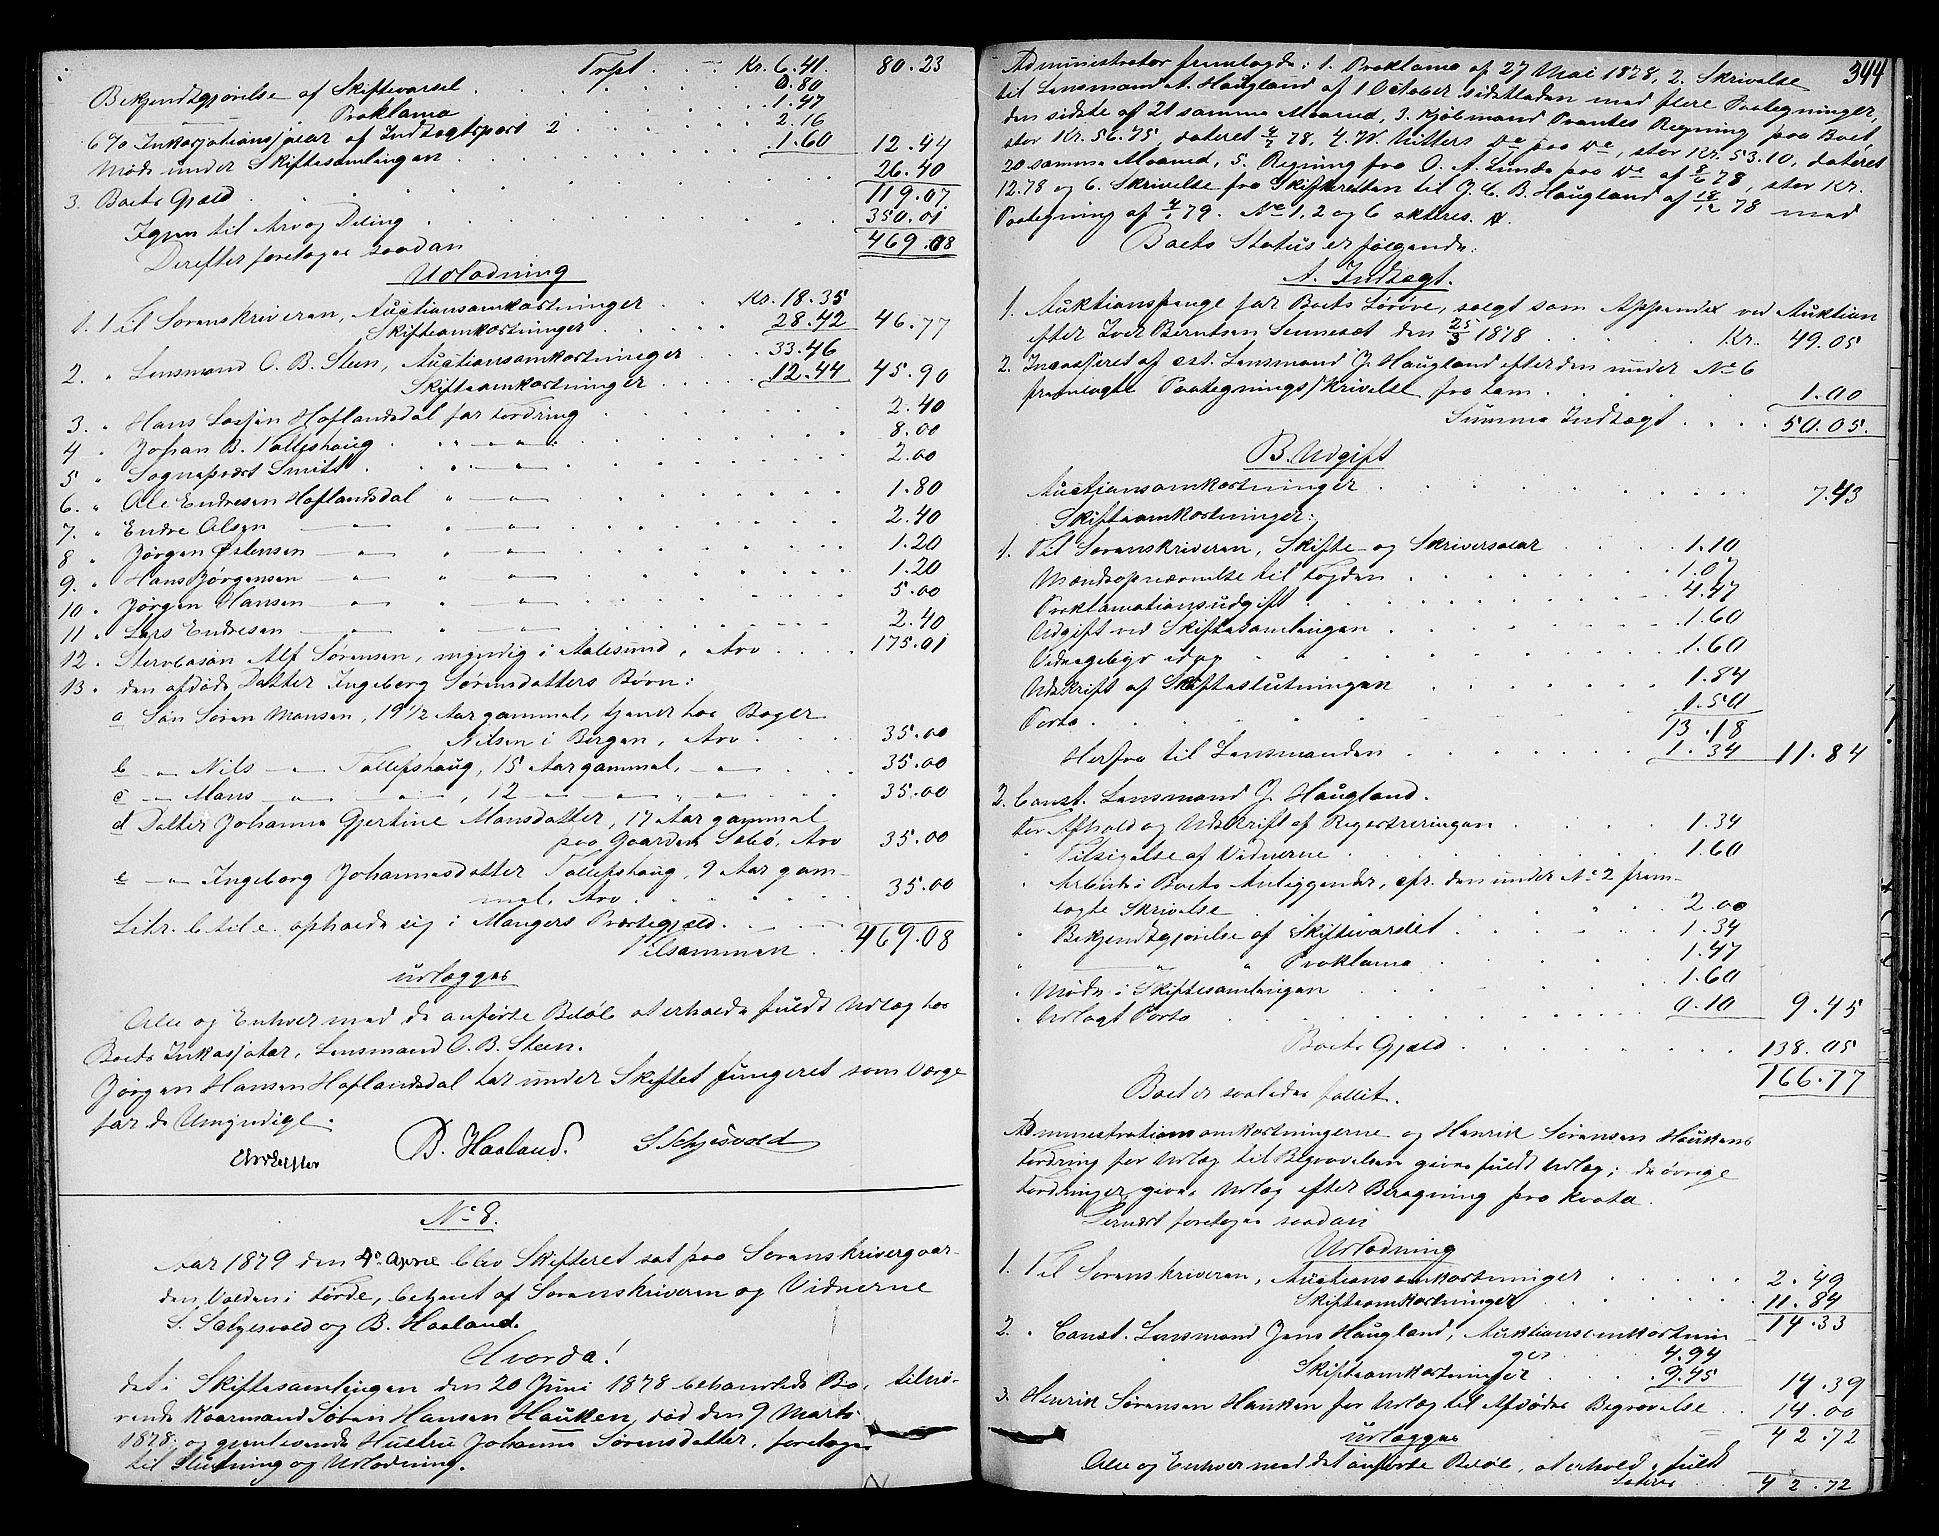 Trpt. Kr. 6.41. 80.23
Bekjendtgjørelse af Skiftevarsel 0.80
" Proklama 1.47
6% Inkasjationssalær af Indtægtspost 2 2.16
Møde under Skiftesamlingen 1.60 12.44
3. Boets Gjæld 26.40
119.07
Igjen til Arv og Deling 350.01
469.08
Derefter foretoges saadan
Udlodning
1. Til Sorenskriveren, Auctionsomkostninger Kr. 18.35
Skifteomkostninger 28.42 46.77
2. " Lensmand O. B. Steen, Auctionsomkostninger 33.46
Skifteomkostninger 12.44 45.90
3. " Hans Lassen Hoflandsdal for Fordring 2.40
4 " Johan B. Tollefshaug " — " — 8.00
5 " Sogneprest Smitt " — " — 2.00
6. " Ole Endresen Hoflandsdal " — " — 1.80
7. " Endre Olsen — " — " — 2.40
8 " Jørgen Østensen — " — " — 1.20
9. " Hans Jørgensen — " — " — 1.20
10 " Jørgen Hansen — " — " — 5.00
11 " Lars Endresen — " — " — 2.40
12. " Stervbøsøn Alf Sørensen, myndig i Aalesund, Arv 175.01
13 " den afdøde Datter Ingeborg Sørensdatters Børn:
a Søn Søren Monsen, 19 1/2 Aar gammel, tjener hos Bager
Nilsen i Bergen, Arv 35.00
b — " — Nils — " — Tollefshaug, 15 Aar gammel, — " — 35.00
c — " — Mons — " — — " —, 12 — " — — " — 35.00
d Datter Johanna Gjertine Monsdatter, 17 Aar gammel
paa Gaarden Sæbø, Arv 35.00
e — " — Ingeborg Johannesdatter Tollefshaug, 9 Aar gam-
mel, Arv 35.00
Litr. b til e. opholde sig i Mangers Præstegjæld.
Tilsammen 469.08
udlægges
Alle og Enhver med de anførte Beløb at erholde fuldt Udlæg hos
Boets Inkasjator, Lensmand O. B. Steen.
Jørgen Hansen Hoflandsdal har under Skiftet fungeret som Værge
for de Umyndige.
B. Haaland. S Seljesvold
No 8.
Aar 1879 den 4de April blev Skifteret sat paa Sorenskrivergaar-
den Volden i Førde, betjent af Sorenskriveren og Vidnerne
S. Seljesvold og B. Haaland.
Hvorda!
det i Skiftesamlingen den 20 Juni 1878 behandlede Bo, tilhø-
rende Kaarmand Søren Hansen Hauken, død den 9 Marts
1878, og gjenlevende Hustru Johanna Sørensdatter, foretoges
til Slutning og Udlodning.
344
Administrator fremlagde: 1. Proklama af 27 Mai 1878, 2. Skrivelse
til Lensmand A. Haugland af 1 October sidstleden med flere Paategninger,
den sidste af 21 samme Maaned, 3. Kjøbmand Prantes Regning paa Boet
stor Kr. 56.75, dateret 2/7 78, 4. W. Ritters do paa do, stor Kr. 53.10, dateret
20 samme Maaned, 5. Regning fra O. A. Lunde paa do af 8/6 78, stor Kr.
12.78 og 6. Skrivelse fra Skifteretten til J. C. B. Haugland af 18/12 78 med
Paategning af 4/1 79. No 1, 2 og 6 akteres.
Boets Status er følgende:
A. Indtægt.
1. Auktionspenge for Boets Løsøre, solgt som Appendix ved Auktion
efter Iver Berntsen Sennesæt den 25/3 1878 Kr. 49.05
2. Incasseret af cst. Lensmand J. Haugland efter den under No 6
fremlagte Paategnings/krivelse fra ham 1.00
Summa Indtægt 50.05.
B. Udgift
Auctionsomkostninger 7.43
Skifteomkostninger:
1. Til Sorenskriveren, Skifte- og Skriversalær 1.10
Mændsopnævnelse til Fogden 1.07
Proklamationsudgift 4.47
Udgift ved Skiftesamlingen 1.60
Vidnegebyr idag 1.60
Udskrift af Skifteslutningen 1.84
Porto 1.50
13.18
Herfra til Lensmanden 1.34 11.84
2. Const. Lensmand J. Haugland.
For Afhold og Udskrift af Registreringen 1.34
" Tilsigelse af Vidnerne 1.60
" Arbeide i Boets Anliggender, cfr. den under No 2 frem-
lagte Skrivelse 2.00
" Bekjendtgjørelse af Skiftevarslet 1.34
" — " " Proklama 1.47
" Møde i Skiftesamlingen 1.60
" Udlagt Porto 0.10 9.45
Boets Gjæld 138.05
166.77
Boet er saaledes fallit.
Administrationsomkostningerne og Henrik Sørensen Haukens
Fordring for Udlæg til Begravelsen gives fuldt Udlæg; de øvrige
Fordringer gives Udlæg efter Beregning pro kvota.
Dernæst foretoges saadan
Udlodning
1. Til Sorenskriveren, Auctionsomkostninger 2.49
Skifteomkostninger 11.84
14.33
2. " Const. Lensmand Jens Haugland, Auktionsomkostnin-
ger 4.94
Skifteomkostninger 9.45 14.39
3. Henrik Sørensen Hauken for Udlæg til Afdødes Begravelse 14.00
udlægges 42.72
Alle og Enhver med det anførte Beløb, at erholde fuldt
Lateris 42.72